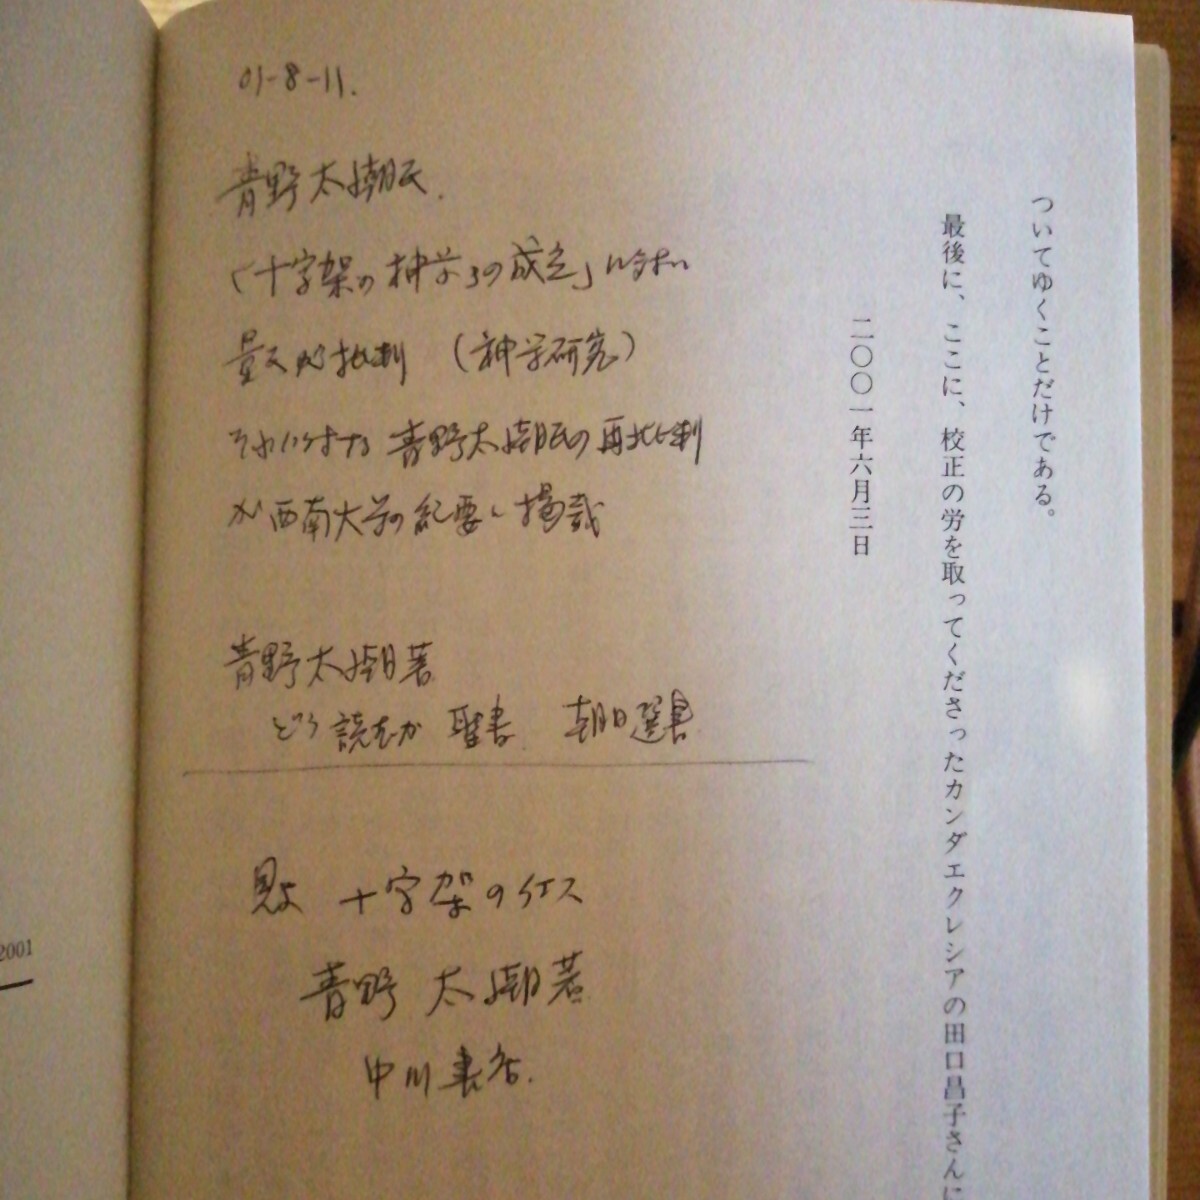 ついてゆくことだけである。
最後に、ここに、校正の労を取ってくださったカンダエクレシアの田口昌子さんに
二〇〇一年六月三日
01-8-11.
青野太潮氏.
「十字架の神学の成立」に対し
批判 (神学研究)
それに対する 青野太潮氏の再批判
が西南大学の紀要に掲載
青野太潮著
どう読むか 聖書 朝日選書
見よ 十字架のイエス
青野 太潮著
中川書店.
2001